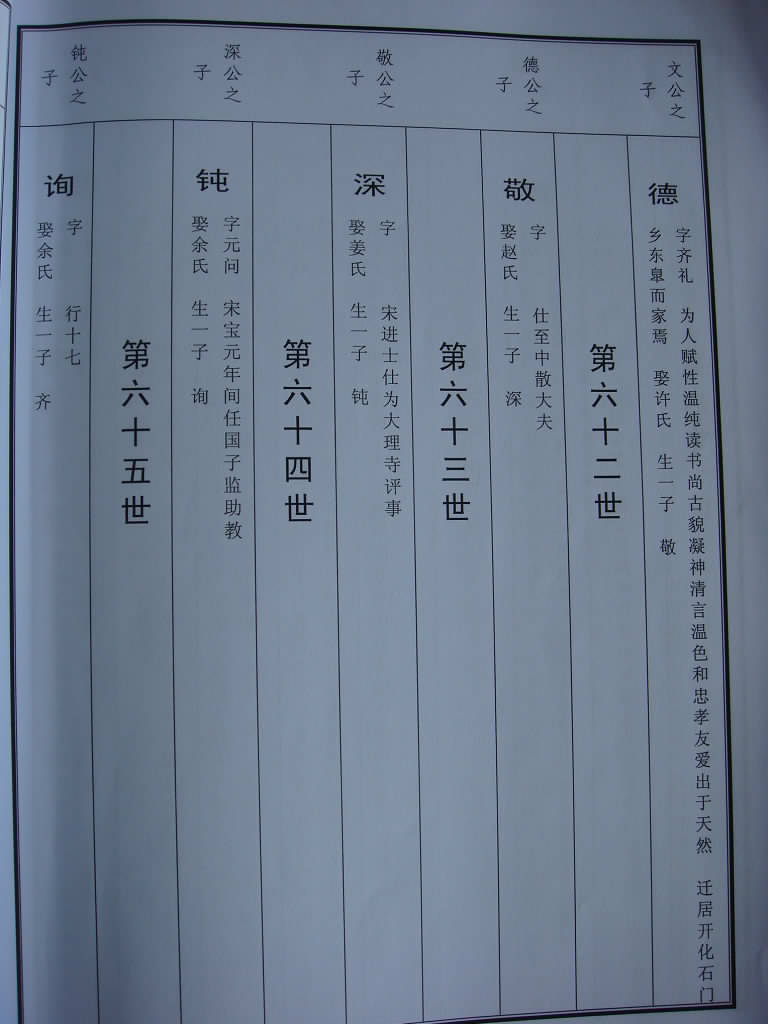 文公之
子
德
字齐礼 为人赋性温纯读书尚古貌凝神清言温色和忠孝友爱出于天然 迁居开化石门
乡东皐而家焉 娶许氏 生一子 敬
第六十二世
德公之
子
敬
字 仕至中散大夫
娶赵氏 生一子 深
第六十三世
敬公之
子
深
字 宋进士仕为大理寺评事
娶姜氏 生一子 钝
第六十四世
深公之
子
钝
字元问 宋宝元年间任国子监助教
娶余氏 生一子 询
第六十五世
钝公之
子
询
字 行十七
娶余氏 生一子 齐